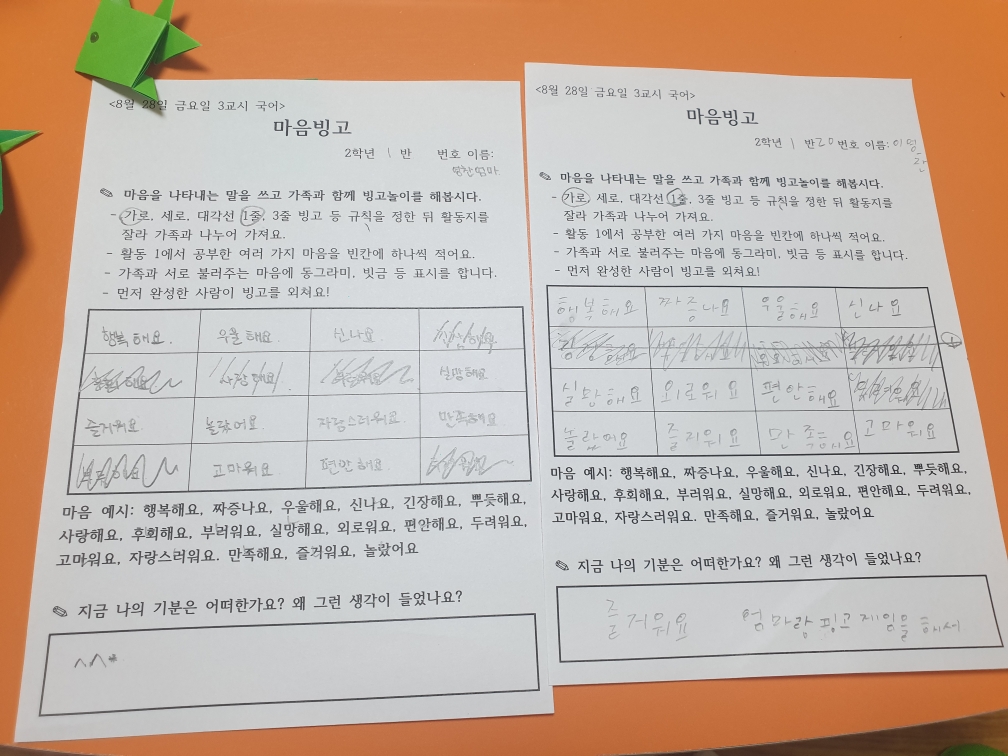 <8월 28일 금요일 3교시 국어>
마음빙고
2학년 1 반 번호 이름:
✎ 마음을 나타내는 말을 쓰고 가족과 함께 빙고놀이를 해봅시다.
- 가로, 세로, 대각선 1줄, 3줄 빙고 등 규칙을 정한 뒤 활동지를
잘라 가족과 나누어 가져요.
- 활동 1에서 공부한 여러 가지 마음을 빈칸에 하나씩 적어요.
- 가족과 서로 불러주는 마음에 동그라미, 빗금 등 표시를 합니다.
- 먼저 완성한 사람이 빙고를 외쳐요!
행복해요 우울해요 신나요
사랑해요 실망해요
즐거워요 놀랐어요 자랑스러워요 만족해요
고마워요 편안해요
마음 예시: 행복해요, 짜증나요, 우울해요, 신나요, 긴장해요, 뿌듯해요,
사랑해요, 후회해요, 부러워요, 실망해요, 외로워요, 편안해요, 두려워요,
고마워요, 자랑스러워요. 만족해요, 즐거워요, 놀랐어요
✎ 지금 나의 기분은 어떠한가요? 왜 그런 생각이 들었나요?
^.^*
<8월 28일 금요일 3교시 국어>
마음빙고
2학년 1 반 20 번호 이름:
✎ 마음을 나타내는 말을 쓰고 가족과 함께 빙고놀이를 해봅시다.
- 가로, 세로, 대각선 1줄, 3줄 빙고 등 규칙을 정한 뒤 활동지를
잘라 가족과 나누어 가져요.
- 활동 1에서 공부한 여러 가지 마음을 빈칸에 하나씩 적어요.
- 가족과 서로 불러주는 마음에 동그라미, 빗금 등 표시를 합니다.
- 먼저 완성한 사람이 빙고를 외쳐요!
행복해요 짜증나요 우울해요 신나요
실망해요 외로워요 편안해요
놀랐어요 즐거워요 만족해요 고마워요
마음 예시: 행복해요, 짜증나요, 우울해요, 신나요, 긴장해요, 뿌듯해요,
사랑해요, 후회해요, 부러워요, 실망해요, 외로워요, 편안해요, 두려워요,
고마워요, 자랑스러워요. 만족해요, 즐거워요, 놀랐어요
✎ 지금 나의 기분은 어떠한가요? 왜 그런 생각이 들었나요?
즐거워요 엄마랑 빙고게임을 해서